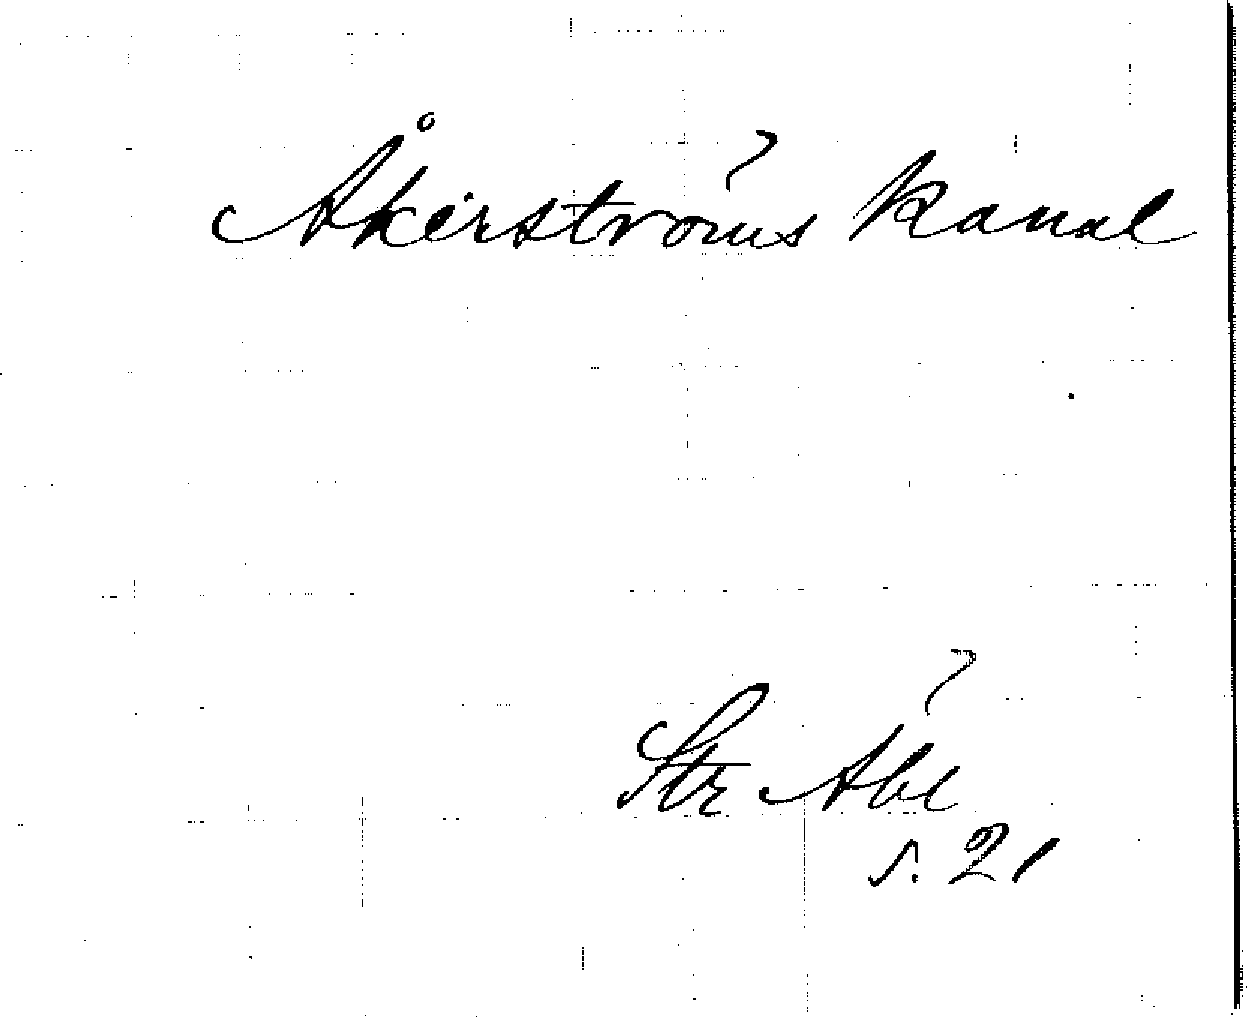 Åkerströms kanal
Str Åbl
s. 21